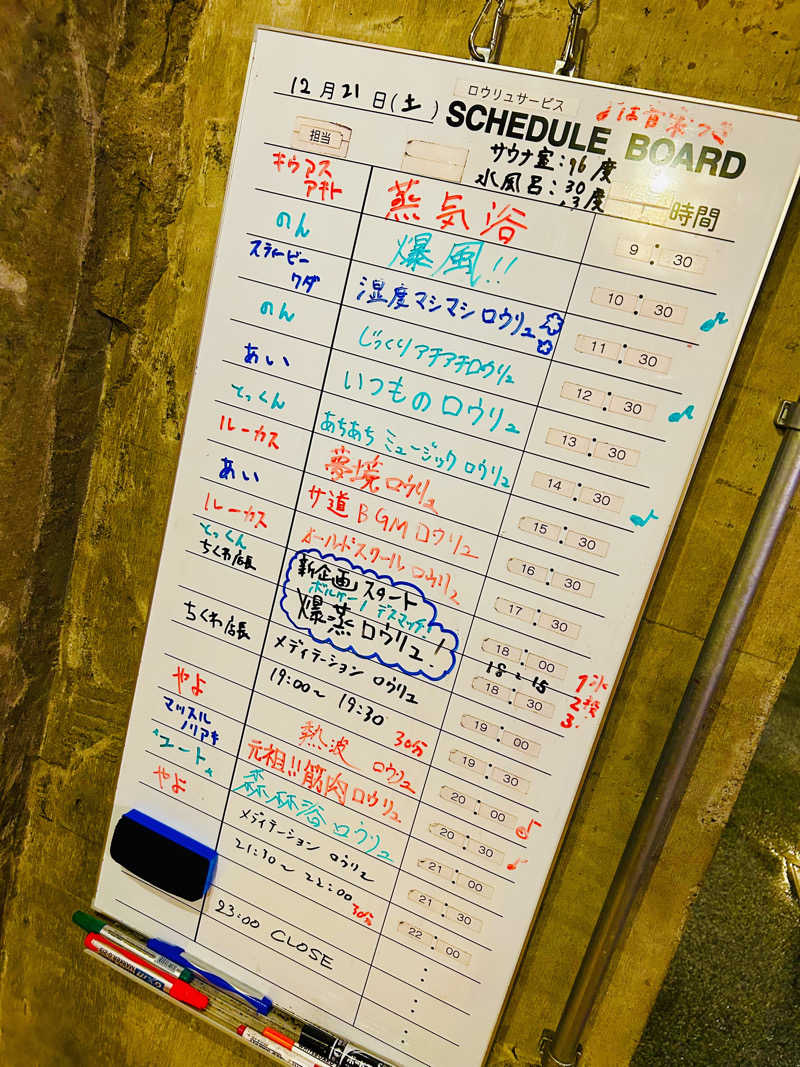 12月21日(土)
ロウリュサービス
SCHEDULE BOARD
♪は音楽つき
サウナ室:96度
水風呂:30.3度
担当
時間
キウアス アキト 蒸気浴 9:30
のん 爆風!! 10:30 ♪
スティービー ワダ 湿度マシマシロウリュ 11:30
のん じっくりアチアチロウリュ 12:30 ♪
あい いつものロウリュ 13:30
とっくん あちあちミュージックロウリュ 14:30 ♪
ルーカス 夢境ロウリュ 15:30
あい サ道BGMロウリュ 16:30
ルーカス オールドスクールロウリュ 17:30
とっくん
ちくわ店長
新企画スタート 18:00
ボルケーノデスマッチ!
爆蒸ロウリュ! 18:30
18:15
ちくわ店長 メディテーション ロウリュ 19:00
19:00〜19:30 30分 19:30
やよ 熱波ロウリュ 20:00 ♪
マッスル ノリアキ 元祖!!筋肉ロウリュ 20:30 ♪
ユート 森林浴ロウリュ 21:00
やよ メディテーション ロウリュ 21:30
21:30〜22:00 30分 22:00
23:00 CLOSE